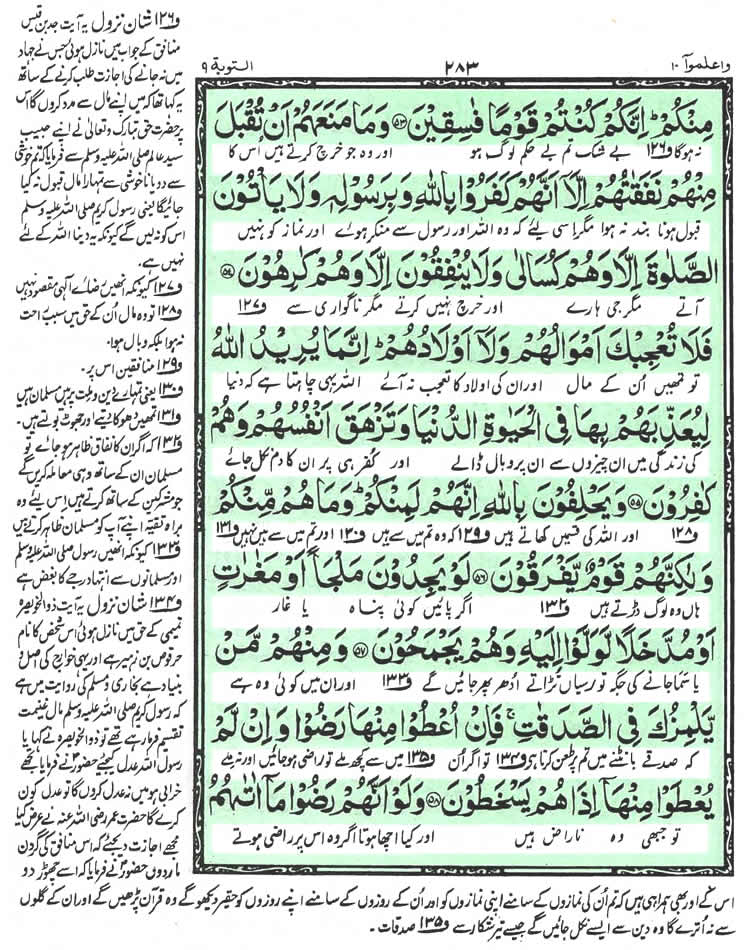 واعلموا ۱۰
۲۸۳
التوبة ۹
مِنْكُمْ ؕ اِنَّكُمْ كُنْتُمْ قَوْمًا فٰسِقِیْنَ ﴿۵۳﴾ وَمَا مَنَعَهُمْ اَنْ تُقْبَلَ
نہ ہوگا ف۱۲۶ بے شک تم بے حکم لوگ ہو اور وہ جو خرچ کرتے ہیں اس کا
مِنْهُمْ نَفَقٰتُهُمْ اِلَّاۤ اَنَّهُمْ كَفَرُوْا بِاللّٰهِ وَبِرَسُوْلِهٖ وَلَا یَاْتُوْنَ
قبول ہونا بند نہ ہوا مگر اسی لیئے کہ وہ اللہ اور رسول سے منکر ہوئے اور نماز کو نہیں
الصَّلٰوةَ اِلَّا وَهُمْ كُسَالٰی وَلَا یُنْفِقُوْنَ اِلَّا وَهُمْ كٰرِهُوْنَ ﴿۵۴﴾
آتے مگر جی ہارے اور خرچ نہیں کرتے مگر ناگواری سے ف۱۲۷
فَلَا تُعْجِبْكَ اَمْوَالُهُمْ وَلَاۤ اَوْلَادُهُمْ ؕ اِنَّمَا یُرِیْدُ اللّٰهُ
تو تمھیں اُن کے مال اور ان کی اولاد کا تعجب نہ آئے اللہ یہی چاہتا ہے کہ دنیا
لِیُعَذِّبَهُمْ بِهَا فِی الْحَیٰوةِ الدُّنْیَا وَتَزْهَقَ اَنْفُسُهُمْ وَهُمْ
کی زندگی میں ان چیزوں سے ان پر وبال ڈالے اور کفر ہی پر ان کا دم نکل جائے
كٰفِرُوْنَ ﴿۵۵﴾ وَیَحْلِفُوْنَ بِاللّٰهِ اِنَّهُمْ لَمِنْكُمْ ؕ وَمَا هُمْ مِّنْكُمْ
ف۱۲۸ اور اللہ کی قسمیں کھاتے ہیں ف۱۲۹ کہ وہ تم میں سے ہیں ف۱۳۰ اور تم میں سے ہیں نہیں ف۱۳۱
وَلٰكِنَّهُمْ قَوْمٌ یَّفْرَقُوْنَ ﴿۵۶﴾ لَوْ یَجِدُوْنَ مَلْجَاً اَوْ مَغٰرٰتٍ
ہاں وہ لوگ ڈرتے ہیں ف۱۳۲ اگر پائیں کوئی پناہ یا غار
اَوْ مُدَّخَلًا لَّوَلَّوْا اِلَیْهِ وَهُمْ یَجْمَحُوْنَ ﴿۵۷﴾ وَمِنْهُمْ مَّنْ
یا سما جانے کی جگہ تو رسیاں تڑاتے اُدھر پھر جائیں گے ف۱۳۳ اور ان میں کوئی وہ ہے
یَّلْمِزُكَ فِی الصَّدَقٰتِ ۚ فَاِنْ اُعْطُوْا مِنْهَا رَضُوْا وَاِنْ لَّمْ
کہ صدقے بانٹنے میں تم پر طعن کرتا ہے ف۱۳۴ تو اگر اُن ف۱۳۵ میں سے کچھ ملے تو راضی ہوجائیں اور نہ ملے
یُعْطَوْا مِنْهَاۤ اِذَا هُمْ یَسْخَطُوْنَ ﴿۵۸﴾ وَلَوْ اَنَّهُمْ رَضُوْا مَاۤ اٰتٰىهُمُ
تو جبھی وہ ناراض ہیں اور کیا اچھا ہوتا اگر وہ اس پر راضی ہوتے
ف۱۲۶ شان نزول یہ آیت جد بن قیس
منافق کے جواب میں نازل ہوئی جس نے جہاد
میں نہ جانے کی اجازت طلب کرنے کے ساتھ
یہ کہا تھا کہ میں اپنے مال سے مدد کروں گا اس
پر حضرت حق تبارک و تعالیٰ نے اپنے حبیب
سید عالم صلی اللہ علیہ وسلم سے فرمایا کہ تم خوشی
سے دو یا ناخوشی سے تمہارا مال قبول نہ کیا
جائیگا یعنی رسول کریم صلی اللہ علیہ وسلم
اس کو نہ لیں گے کیونکہ یہ دینا اللہ کے لئے
نہیں ہے۔
ف۱۲۷ کیونکہ انھیں رضائے الٰہی مقصود نہیں
ف۱۲۸ تو وہ مال اُن کے حق میں سببِ راحت
نہ ہوا بلکہ وبال ہوا۔
ف۱۲۹ منافقین اس پر۔
ف۱۳۰ یعنی تمہارے دین و ملت پر ہیں مسلمان ہیں
ف۱۳۱ تمھیں دھوکا دیتے اور جھوٹ بولتے ہیں۔
ف۱۳۲ کہ اگر ان کا نفاق ظاہر ہو جائے تو
مسلمان ان کے ساتھ وہی معاملہ کریں گے
جو مشرکین کے ساتھ کرتے ہیں اس لیئے وہ
براہ تقیہ اپنے آپ کو مسلمان ظاہر کرتے ہیں
ف۱۳۳ کیونکہ انھیں رسول صلی اللہ علیہ وسلم
اور مسلمانوں سے انتہا درجے کا بغض ہے
ف۱۳۴ شان نزول یہ آیت ذوالخویصرہ
تمیمی کے حق میں نازل ہوئی اس شخص کا نام
حرقوص بن زہیر ہے اور یہی خوارج کی اصل و
بنیاد ہے بخاری و مسلم کی روایت میں ہے
کہ رسول کریم صلی اللہ علیہ وسلم مال غنیمت
تقسیم فرما رہے تھے تو ذوالخویصرہ نے کہا یا
رسول اللہ عدل کیجئے حضور نے فرمایا تجھے
خرابی ہو میں نہ عدل کروں گا تو عدل کون
کرے گا حضرت عمر رضی اللہ عنہ نے عرض کیا
مجھے اجازت دیجئے کہ اس منافق کی گردن
ماردوں حضور نے فرمایا کہ اسے چھوڑ دو
اس کے اور بھی ہمراہی ہیں کہ تم اُن کی نمازوں کے سامنے اپنی نمازوں کو اور اُن کے روزوں کے سامنے اپنے روزوں کو حقیر دیکھو گے وہ قرآن پڑھیں گے اور ان کے گلوں
سے نہ اُترے گا وہ دین سے ایسے نکل جائیں گے جیسے تیر شکار سے ف۱۳۵ صدقات۔